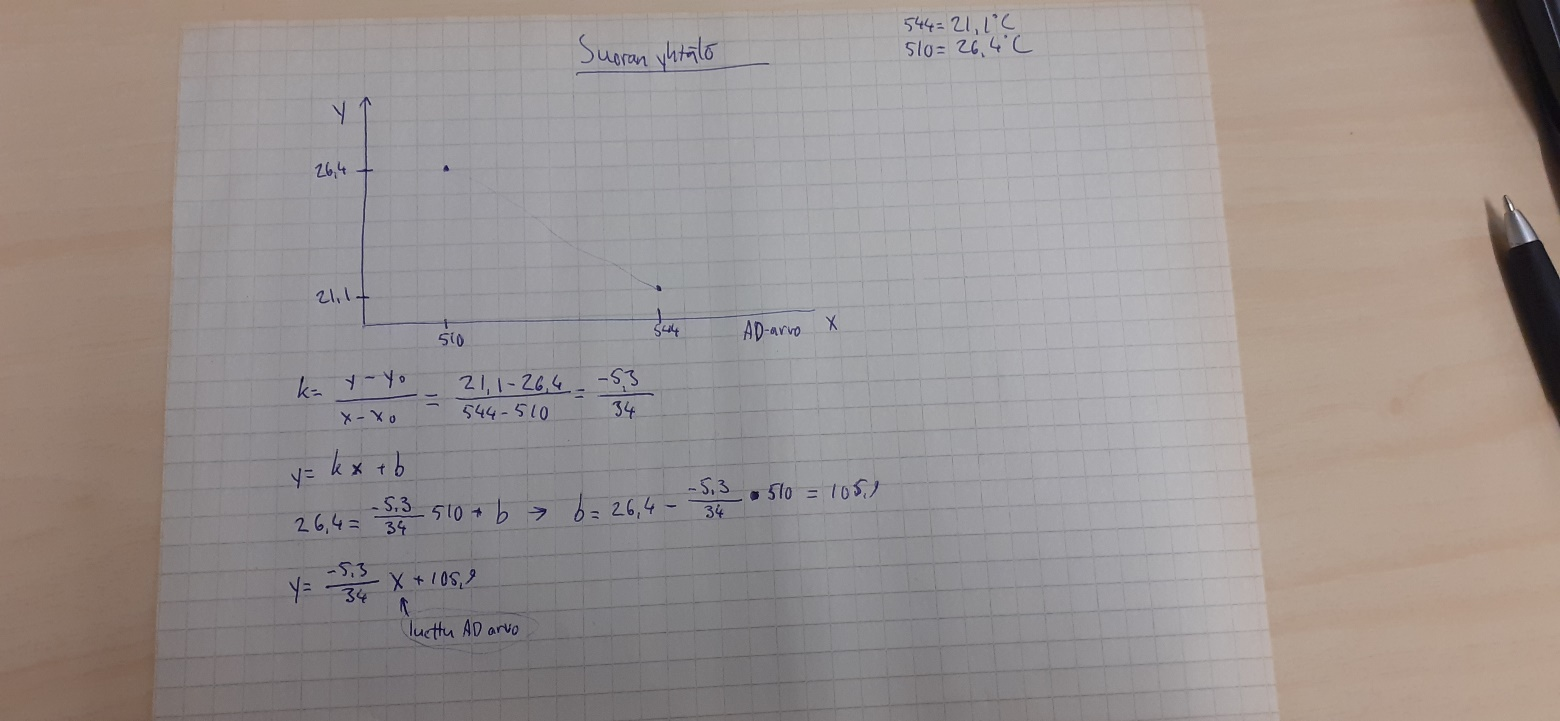 544= 21,1°C
510= 26,4°C
Suoran yhtälö
Y
26,4
21,1
510
544
AD-arvo X
k= y-y₀/x-x₀ = 21,1-26,4/544-510 = -5,3/34
y= kx+b
26,4= -5,3/34 510+b → b= 26,4 - -5,3/34 • 510 = 105,9
y= -5,3/34 x+105,9
luettu AD arvo